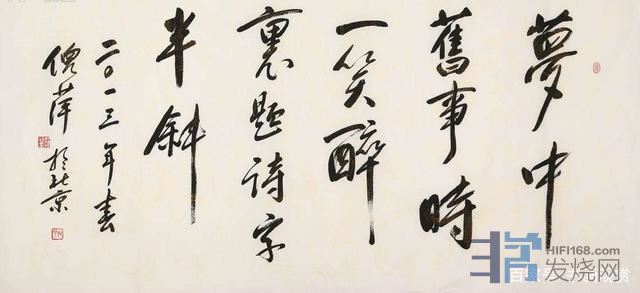 夢中
舊事時
一笑醉
裏題诗字
半斜
二〇一三年春
倪萍於北京
HIFI168.com
发烧网